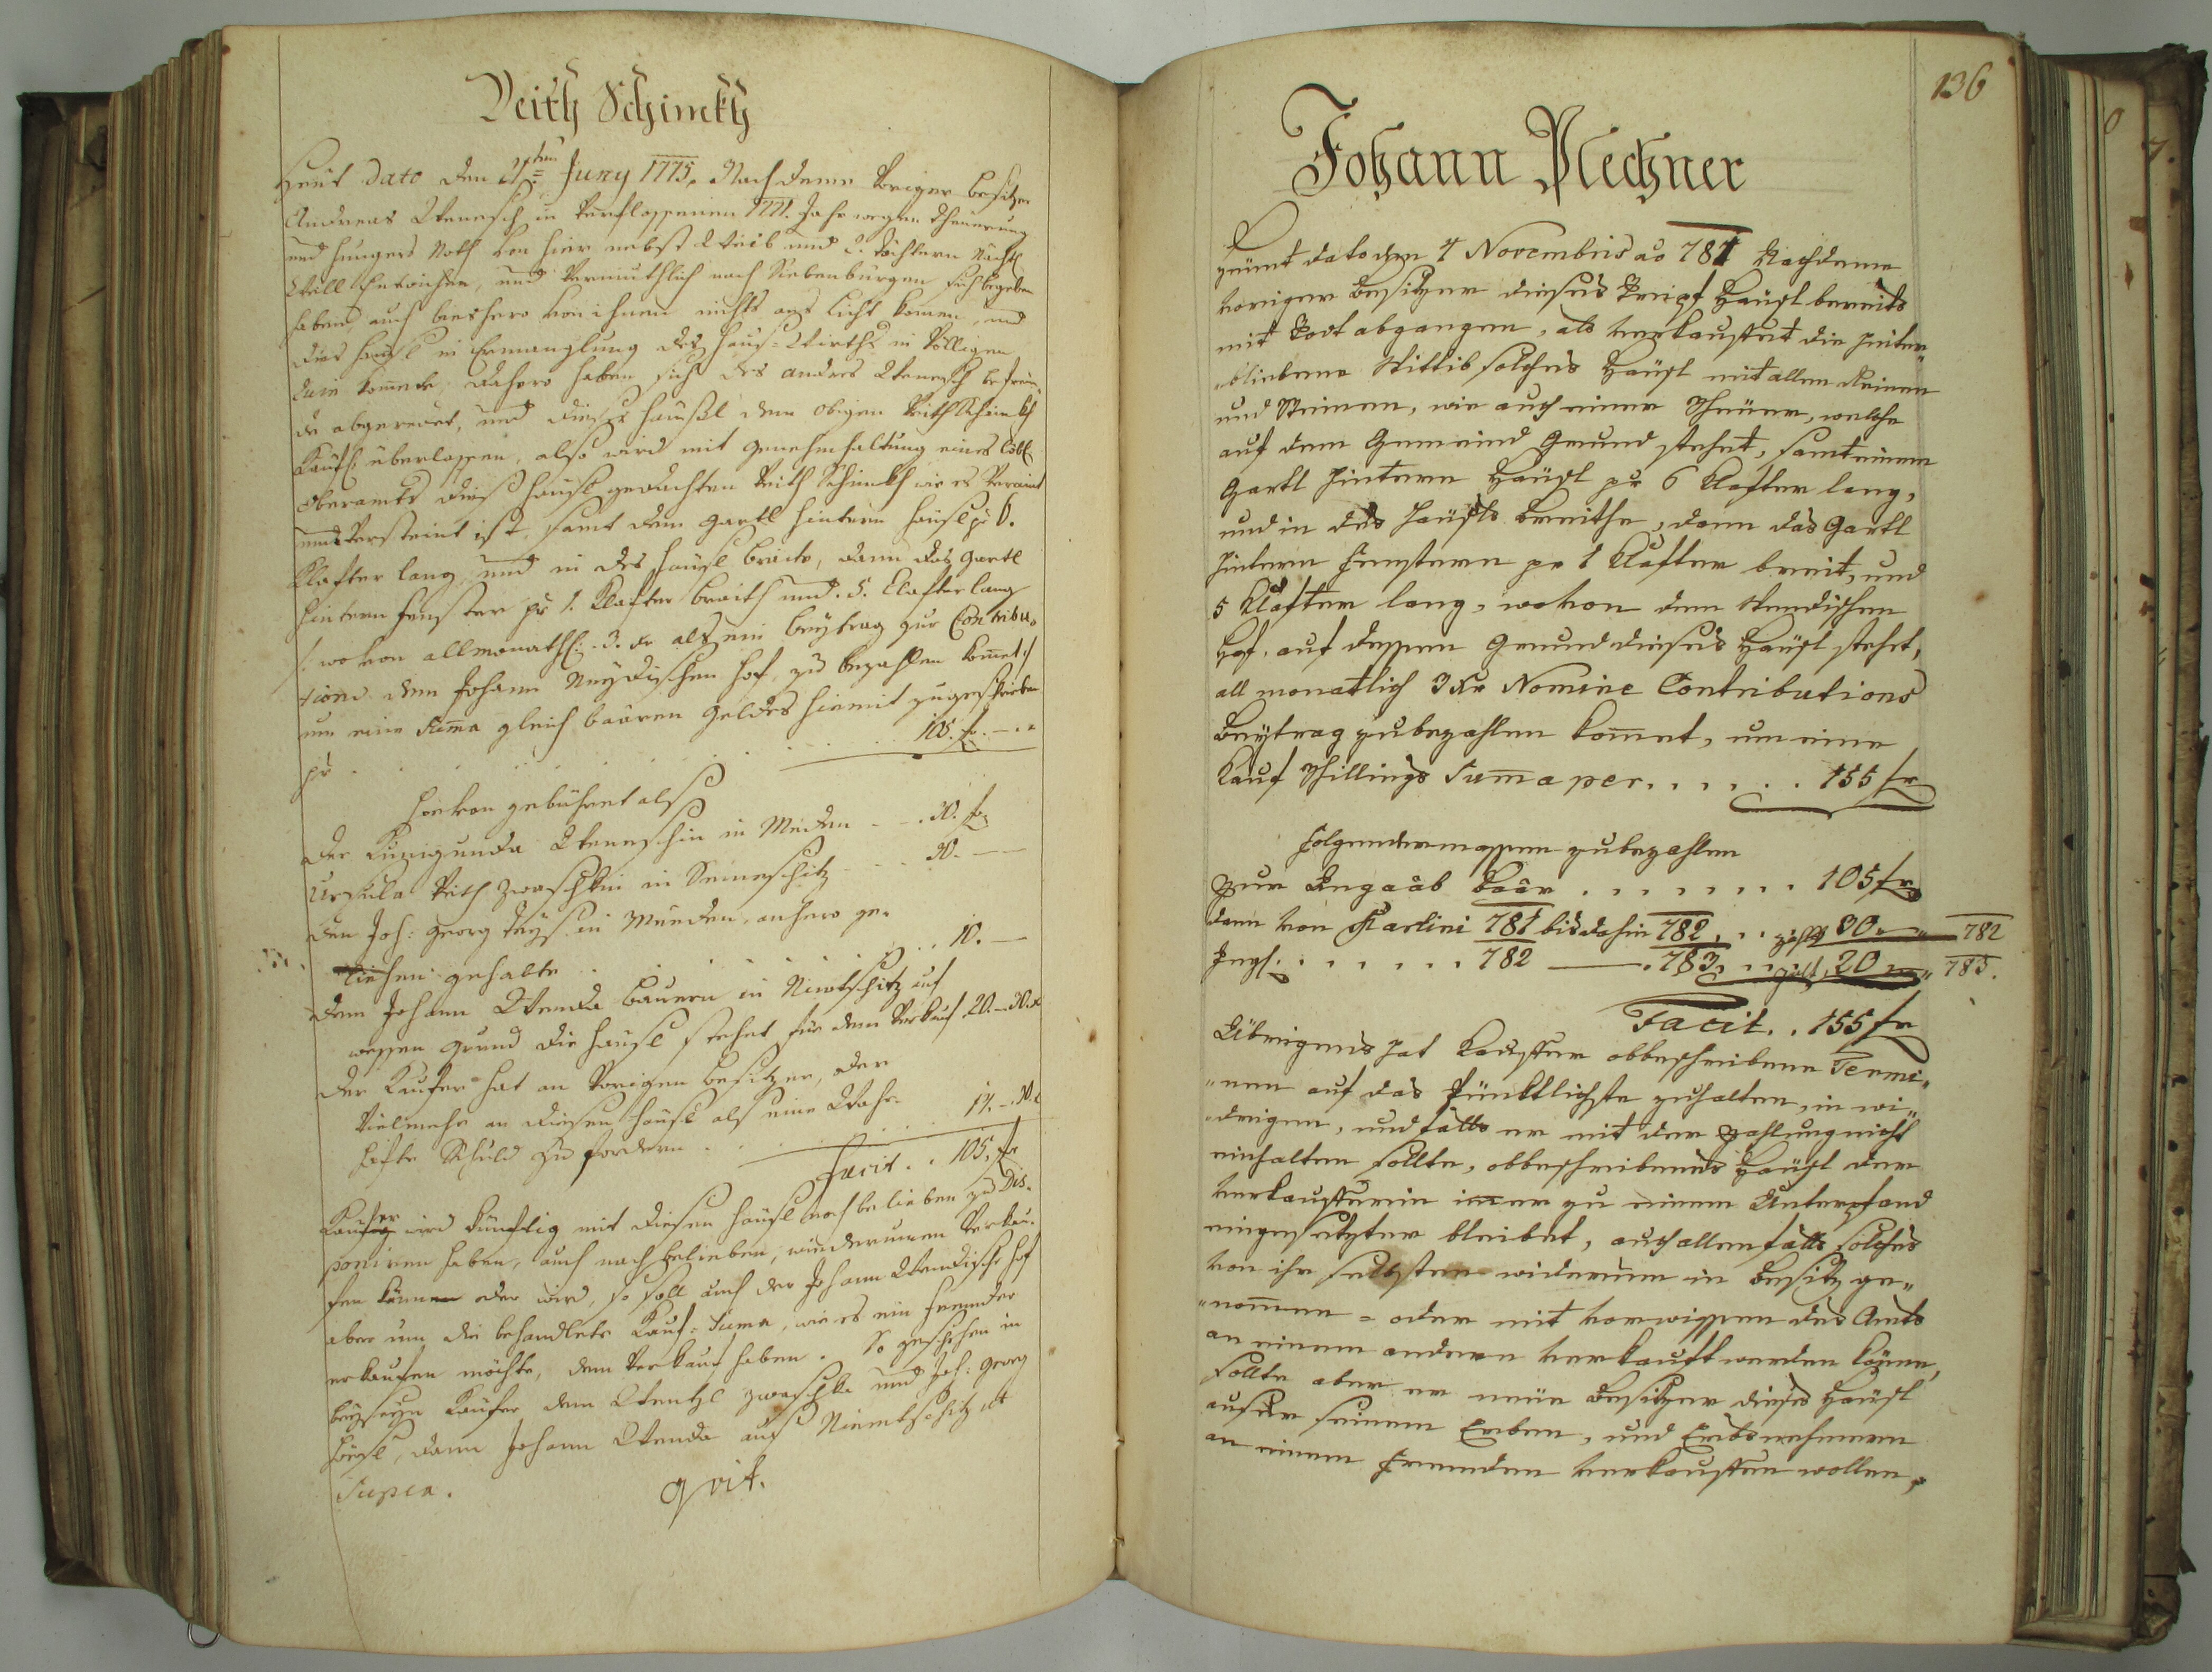 Veith Schimekh
Heut dato den Juny 1775. Nach deme Voriger besitzer
Andreas Wenesch in verflossenen 1771. Jahr wegen Theuerung
und hungers Noth von hier nebst Weib und 2. Töchtern Nächtl.
Weill entwichen, und vermuthlich nach Siebenburgen sich begeben
haben, auch bieshero von ihnen nichts ans Licht komen, und
dies häusl in Ermanglung des Haus-Wirths in Völligen
Ruin komete, dahero haben sich des andres Wenesch befreün-
de abgeredet, und dieses häusl dem obigen Veith Schimekh
Käufl. überlassen, also wird mit genehmhaltung eines löbl.
Oberamts dieß häusl gedachten Veith Schimekh wie es veraint
und versteint ist, samt dem gartl hintern häusl pr 6.
Klafter lang, und in des häusl braite, dann das gartl
hintern fenster pr 1. Klafter braith und 5. Clafter lang
/: wovon allmonathl. 3. kr als ein beytrag zur Contribu-
tion dem Johann Hof, zu bezahlen komet :/
um eine Suma gleich baaren geldes hiemit zugeschrieben
pr . . . . . 105. fr. –.–
hievon gebühret als
der Kunigunda Weneschin in – . 30. fr.
Ursula Veith Zwaschkin in . . 30. –
den Joh: georg in anhero ge-
liehen gehalte . . . . 10. –
dem Johann Wenda bauern in Niemtschitz auf
wessen grund die häusl stehet für dem Verkauf 20. – 30. x
der Kaufer hat an Vorigen besitzer, oder
Vielmehr an diesen häusl als eine Wahr-
hafte Schuld zu fordern . . . . 14. – 30. x
Facit . . 105. fr
Kaufer wird künftig mit diesen häusl nach belieben zu Dis-
poniren haben, auch nach belieben, wiederumen verkau-
fen können oder wird, so soll auch der Johann Wendische hof
aber um die behandlete Kauf-Suma, wie es ein fremder
erkaufen möchte, den Verkauf haben. So geschehen in
beyseyn Kaufer dem Wentzl Zwaschka und Joh: georg
dann Johann Wenda aus Niemtschitz ut
Supra. quit.
136
Johann Plechner
Heünt dato den 4 Novembris ao 781 Nachdeme
voriger Besitzer dieses Häusl bereits
mit Todt abgangen, als verkauffet die hinter„
„bliebene Wittib solches Häusl mit allen Reinen
und Steinen, wie auch einer Scheuer, welche
auf dem Gemeind Grund stehet, samt einem
Gartl hintern Häusl pr 6 Klafter lang,
und in des häusls Breithe, dann das Gartl
hintern Fenstern pr 1 Klafter breit, und
5 Klafter lang, wovon dem Wendischen
Hof, auf dessen Grund dieses Häusl stehet,
all monatlich 3 Kr Nomine Contributions
Beytrag zu bezahlen kommet, um eine
Kauf Schillings Summa per. . . . . . . 155 fr
Folgendermassen zu bezahlen
Zur Angaab baar . . . . . . . . 105 fr
dann von Martini 781 bis dahin 782. . . zahlt 30 – „ 782
Ingl. . . . . . . . 782 — . 783. . . . zahlt 20 – „ 783.
Facit . . 155 fr
Übrigens hat Kauffer obbeschriebene Termi„
„nen auf das Pünktlichste zuhalten, in wi„
„drigen, und falls er mit der Zahlung nicht
einhalten sollte, obbeschriebenes Häusl der
verkaufferin imer zu einem Unterpfand
eingesetzter bleibet, auch allenfalls solches
von ihr selbsten widerum in Besitz ge„
„nommen – oder mit vorwissen des Amts
an einem andern verkauft werden köne,
sollte aber er neüe Besitzer dieses Häusl
auser seinem Erben, und Erbsnehmern
an einem Fremden verkauffen wollen,